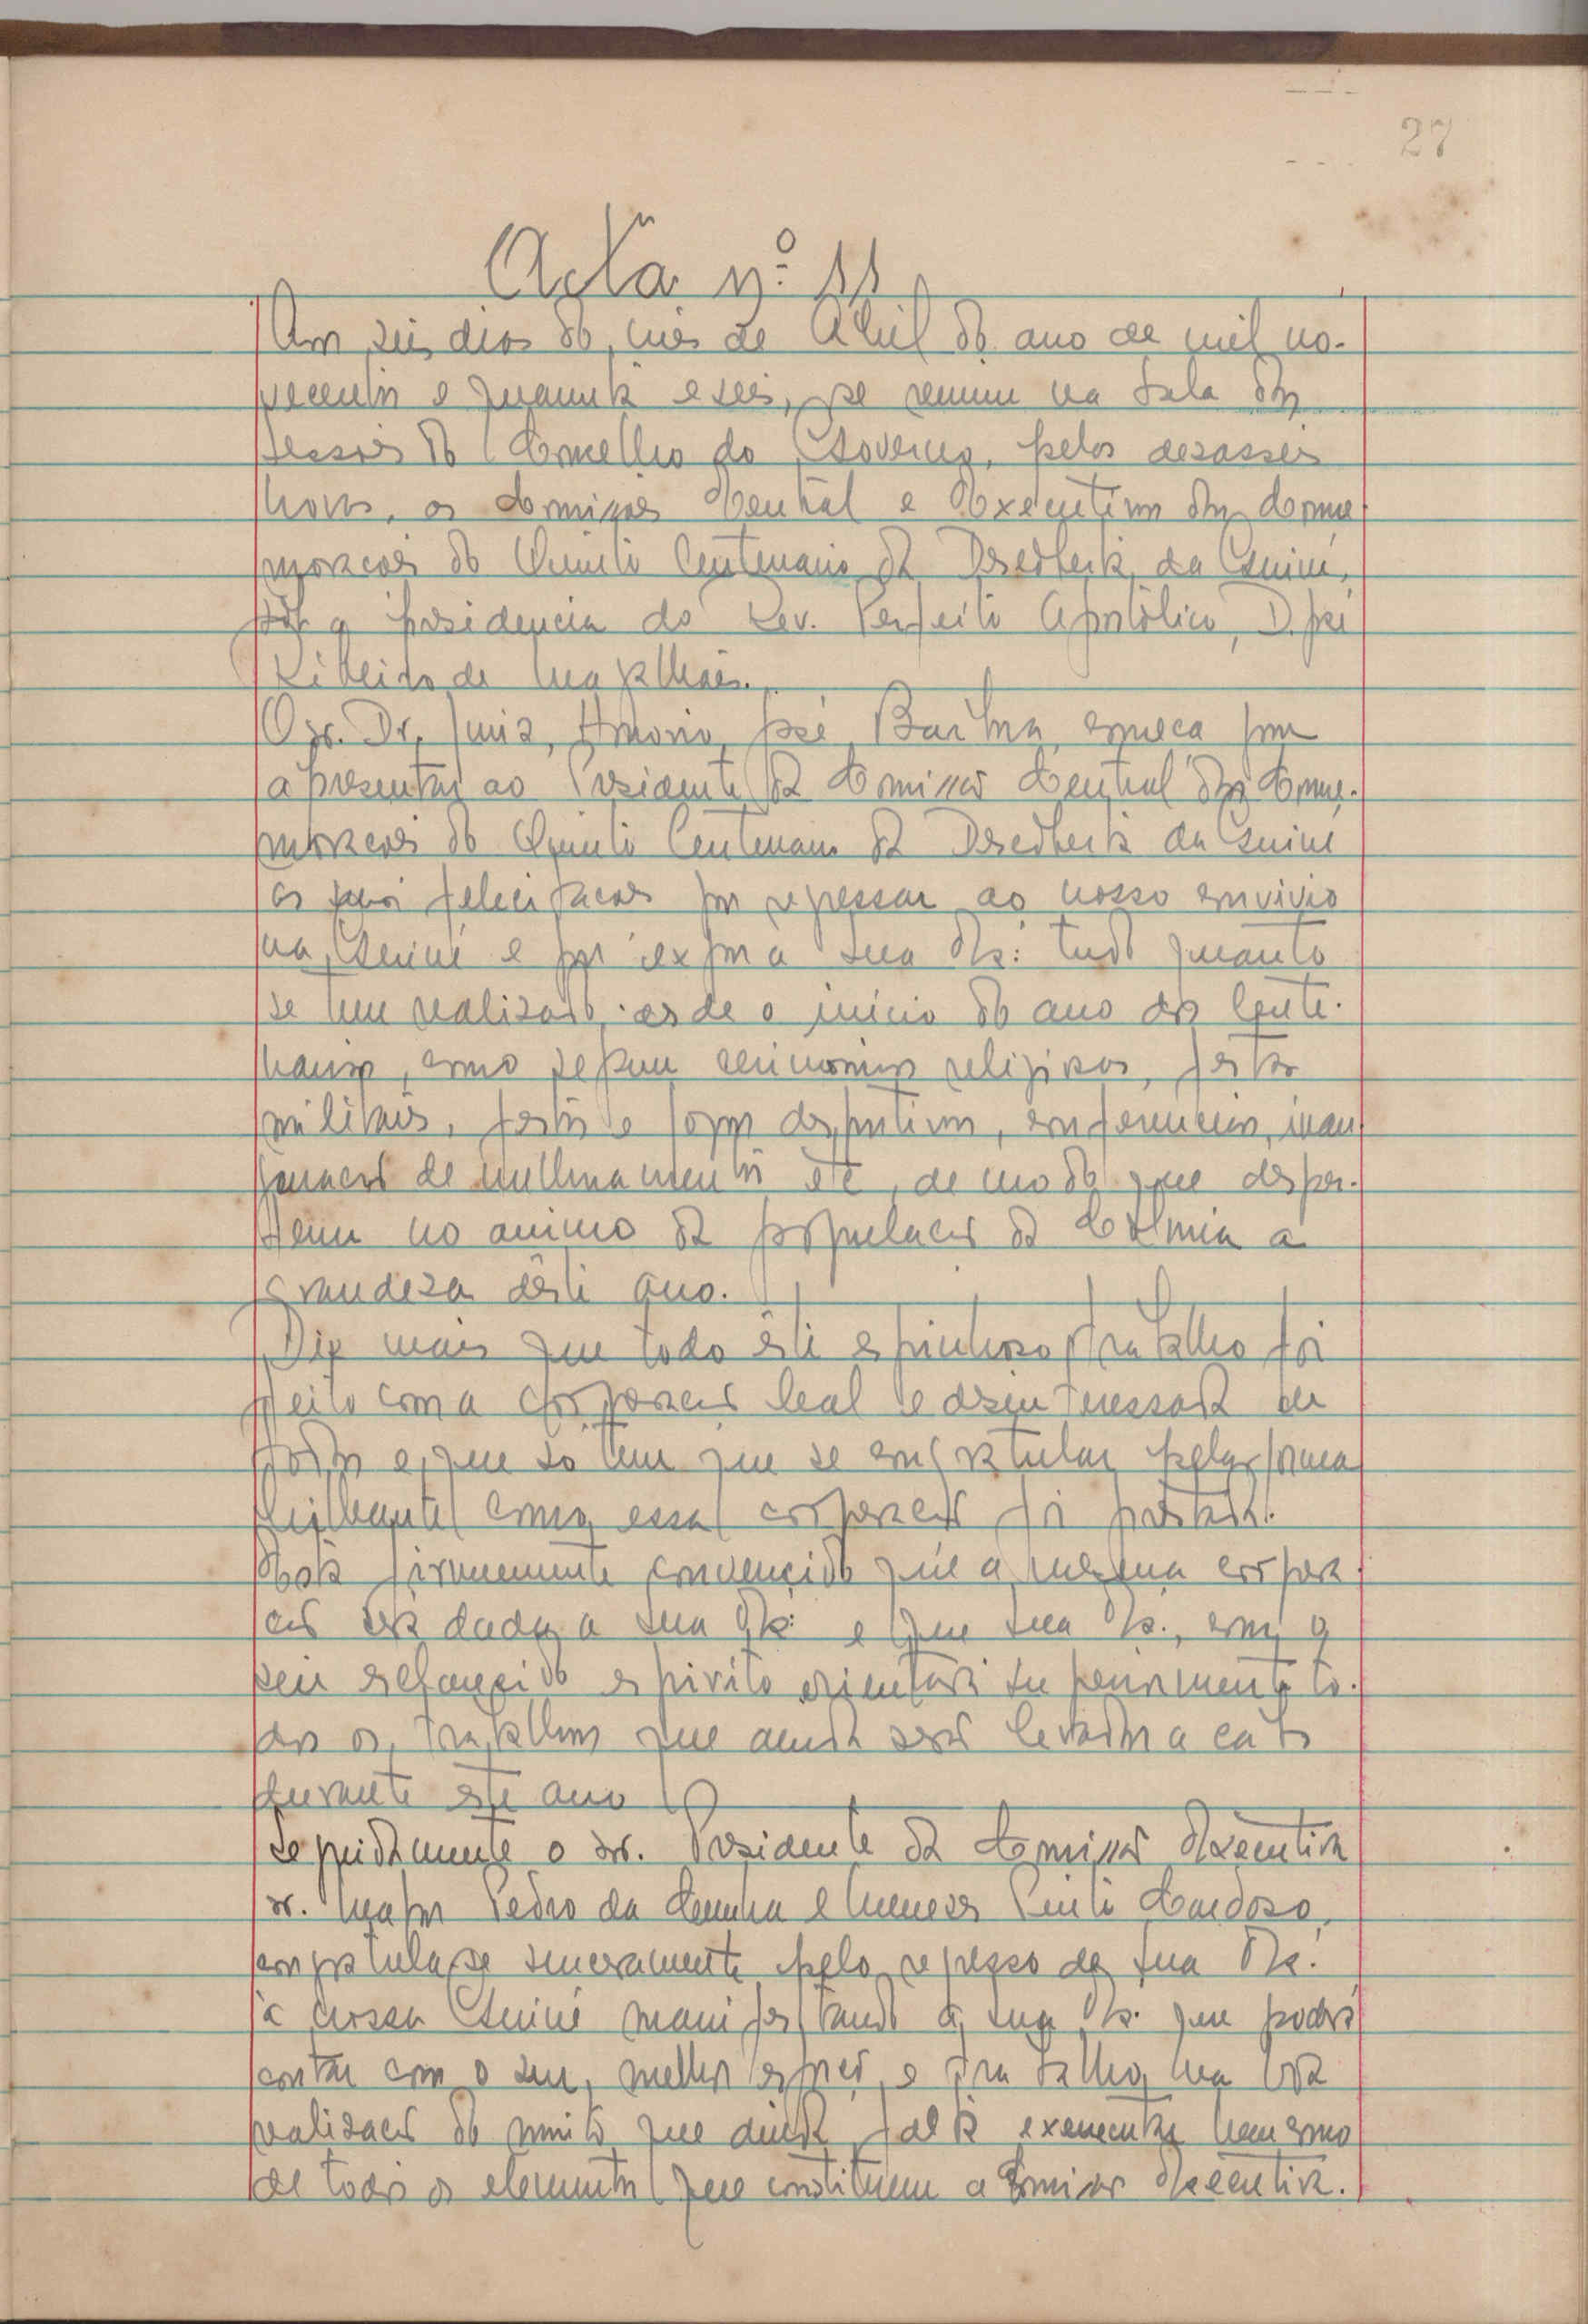 27
Acta nº 11
Aos seis dias do mês de Abril do ano de mil no-
vecentos e quarenta e seis, se reuniu na Sala das
sessões do Conselho do Governo, pelas dezasseis
horas, as Comissões Central e Executiva das Come-
morações do Quinto Centenario da Descoberta da Guiné,
sob a presidencia do Rev. Perfeito Apostólico, D. José
Ribeiro de Magalhães.
O sr. Dr. Juiz, Honorio José Barbosa, começa por
apresentar ao Presidente da Comissão Central das Come-
morações do Quinto Centenario da Descoberta da Guiné
as suas felicitações por regressar ao nosso convivio
na Guiné e por expor a Sua Exª: tudo quanto
se tem realizado, desde o inicio do ano dos Cente-
narios, como sejam cerimonias religiosas, festas
militares, festas e jogos desportivos, conferencias, inau
gurações de melhoramentos etc, de modo que desper-
tem no animo da população da Colonia a
grandeza dêste ano.
Diz mais que todo êste espinhoso trabalho foi
feito com a cooperação leal e desinteressada de
todos e que só tem que se congratular pela forma
brilhante como essa cooperação foi prestada.
Está firmemente convencido que a mesma coopera-
ção será dada a Sua Exª: e que Sua Exª., com o
seu esclarecido espirito orientará superiormente to-
dos os trabalhos que ainda serão levados a cabo
durante este ano
Seguidamente o sr. Presidente da Comissão Executiva
sr. Major Pedro da Cunha e Menezes Pinto Cardoso,
congratula-se sinceramente pelo regresso de Sua Exª:
á nossa Guiné manifestando a Sua Exª. que poderá
contar com o seu melhor esforço e trabalho na boa
realização do muito que ainda falta executar bem como
de todos os elementos que constituem a Comissão Executiva.